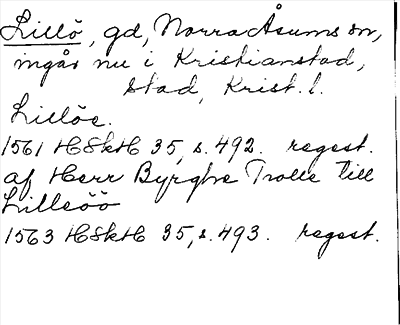 Lillö, gd, Norra Åsums sn,
ingår nu i Kristianstad,
stad, Krist. l.
Lilløe.
1561 HSkH 35, s. 492. regest.
af Herr Byrghe Trolle till
Lilleöö
1563 HSkH 35, s. 493. regest.